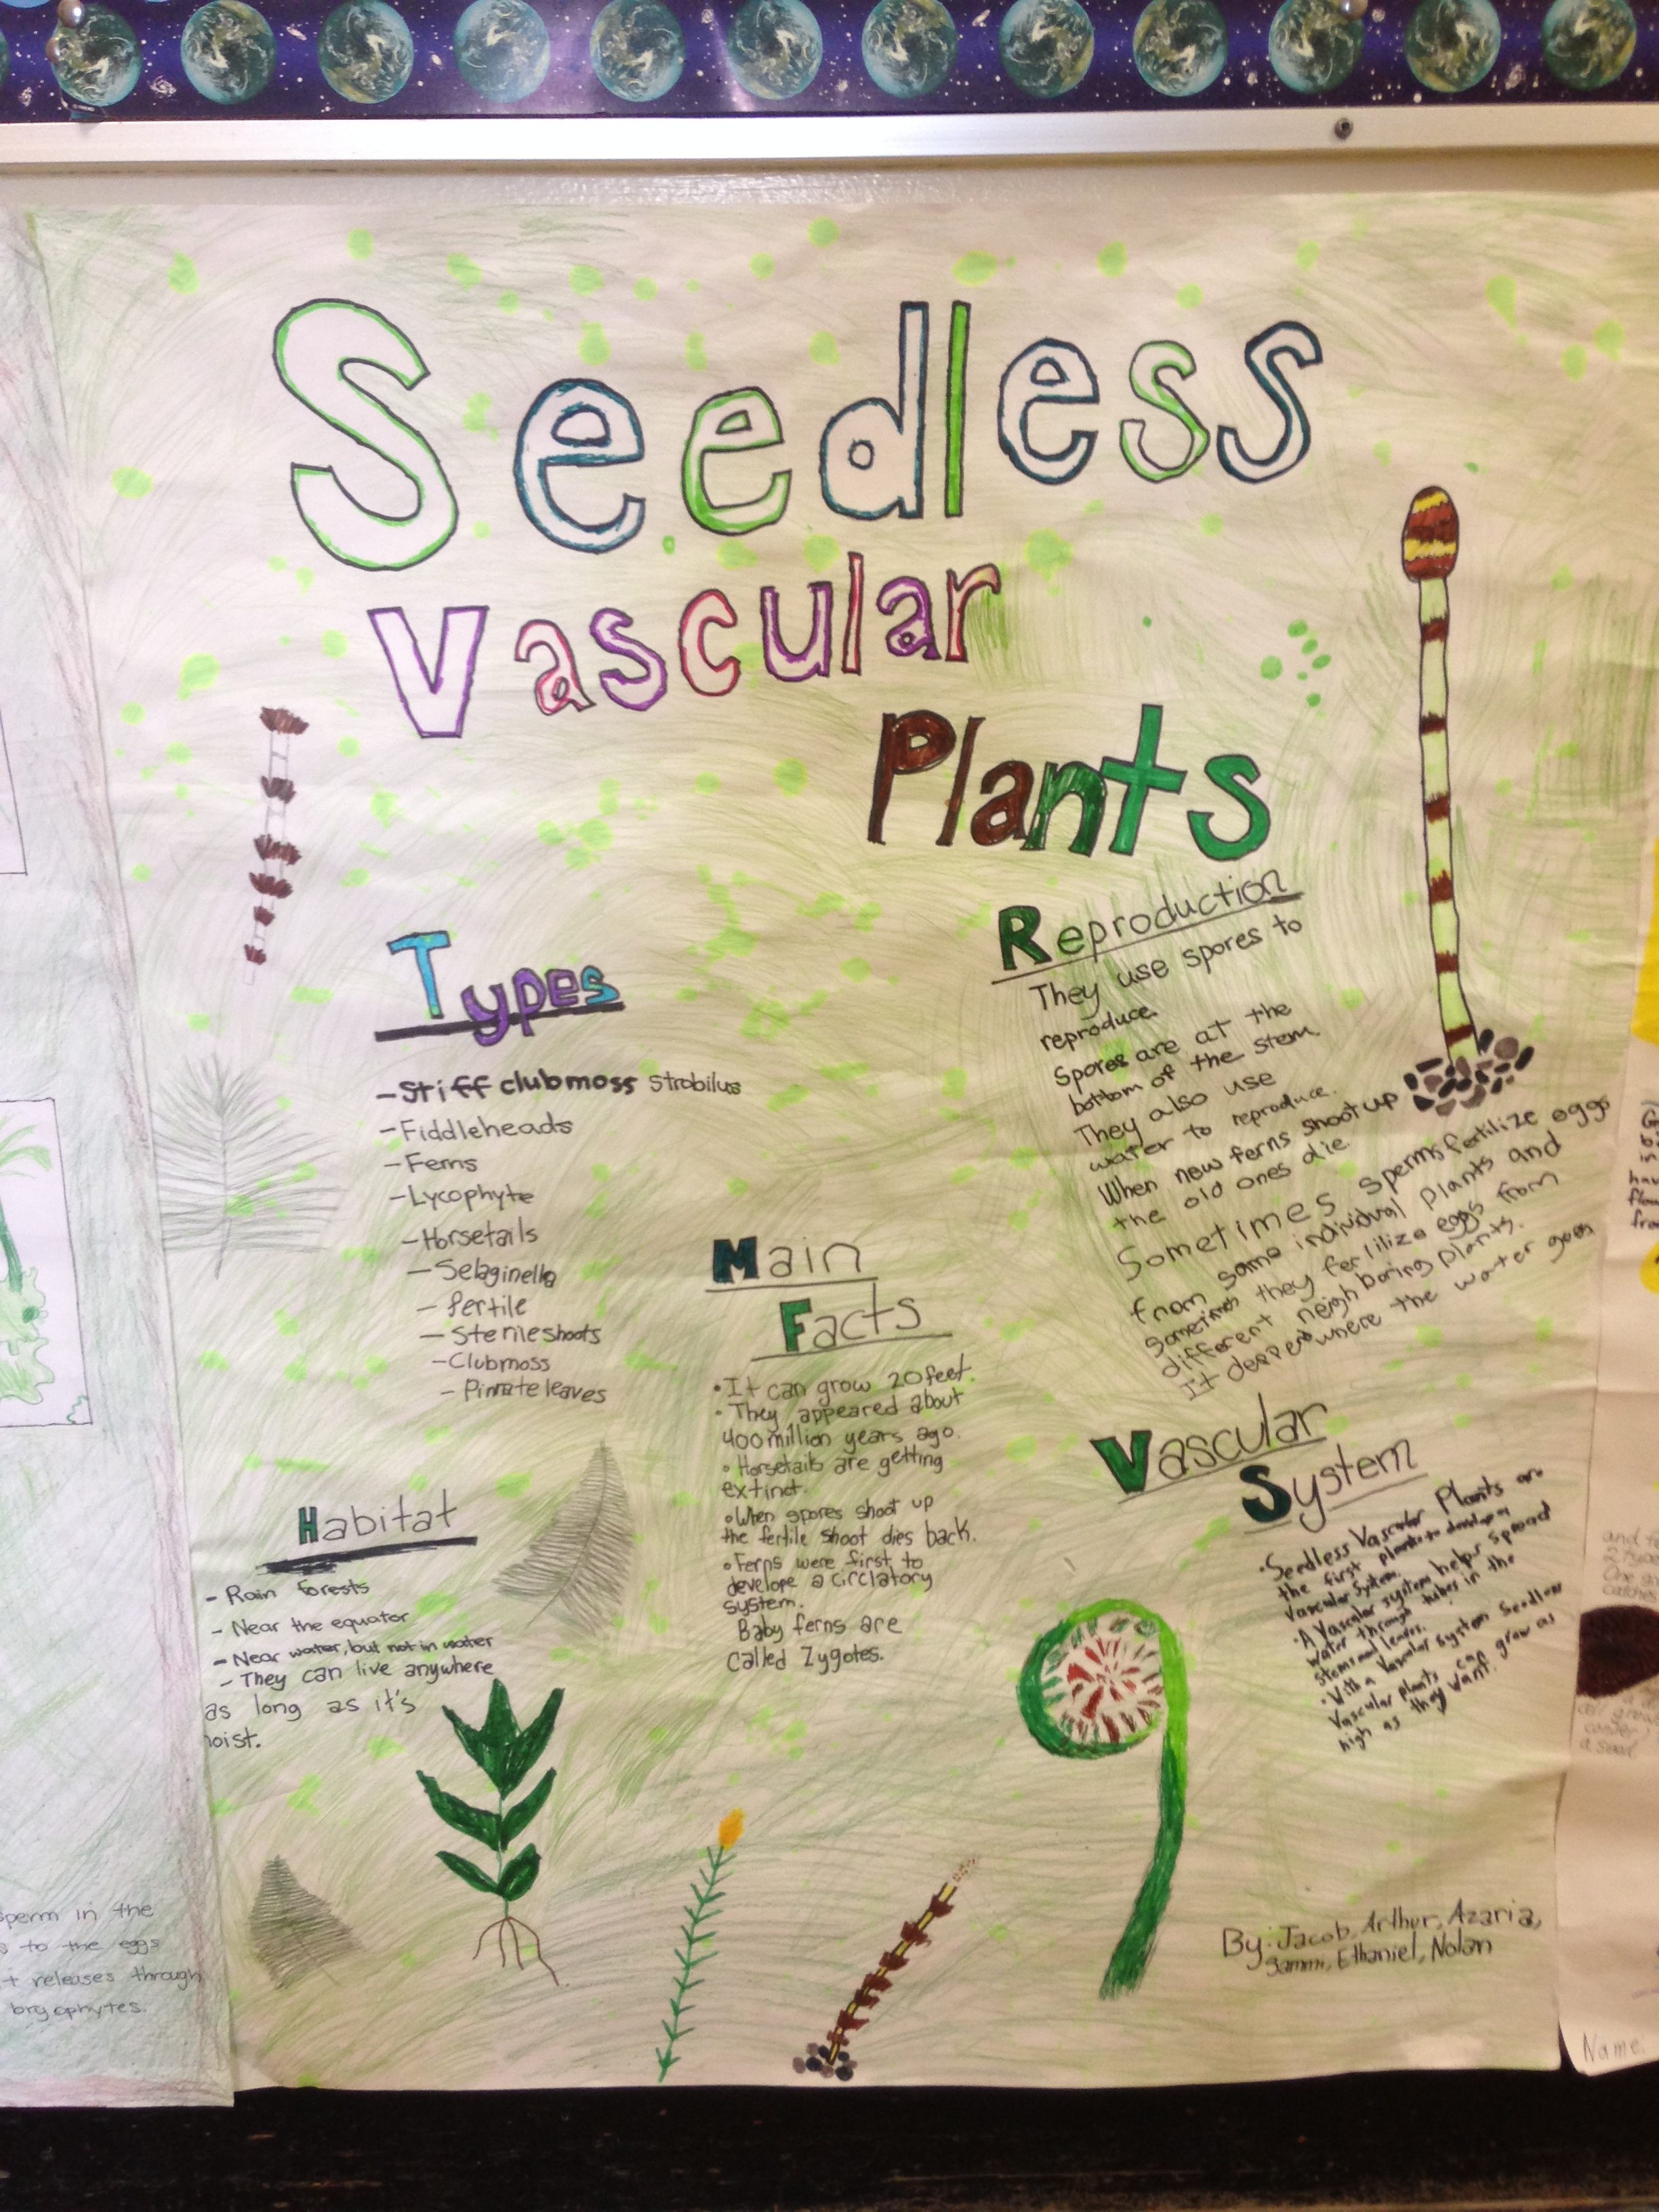 Seedless
Vascular
Plants
Types
- Stiff clubmoss Strobilus
- Fiddleheads
- Ferns
- Lycophyte
- Horsetails
- Selaginella
- fertile
- Sterile shoots
- Clubmoss
- Pinnate leaves
Habitat
- Rain forests
- Near the equator
- Near water, but not in water
- They can live anywhere
as long as it's
moist.
Main
Facts
• It can grow 20 feet.
• They appeared about
400 million years ago.
• Horsetails are getting
extinct.
• When spores shoot up
the fertile shoot dies back.
• Ferns were first to
develope a circlatory
system.
Baby ferns are
called Zygotes.
Reproduction
They use spores to
reproduce
Spores are at the
bottom of the stem.
They also use
water to reproduce.
When new ferns shoot up
the old ones die.
Sometimes sperms fertilize eggs
from same individual plants and
sometimes they fertilize eggs from
different neighboring plants.
It depend where the water goes
Vascular
System
• Seedless Vascular Plants are
the first plants to develop a
Vascular System.
• A Vascular system helps spread
water through tubes in the
stems and leaves.
• With a Vascular system Seedless
Vascular plants can grow as
high as they want.
By: Jacob, Arthur, Azaria,
Sammi, Ethaniel, Nolan
sperm in the
to the eggs
it releases through
bryophytes.
Name